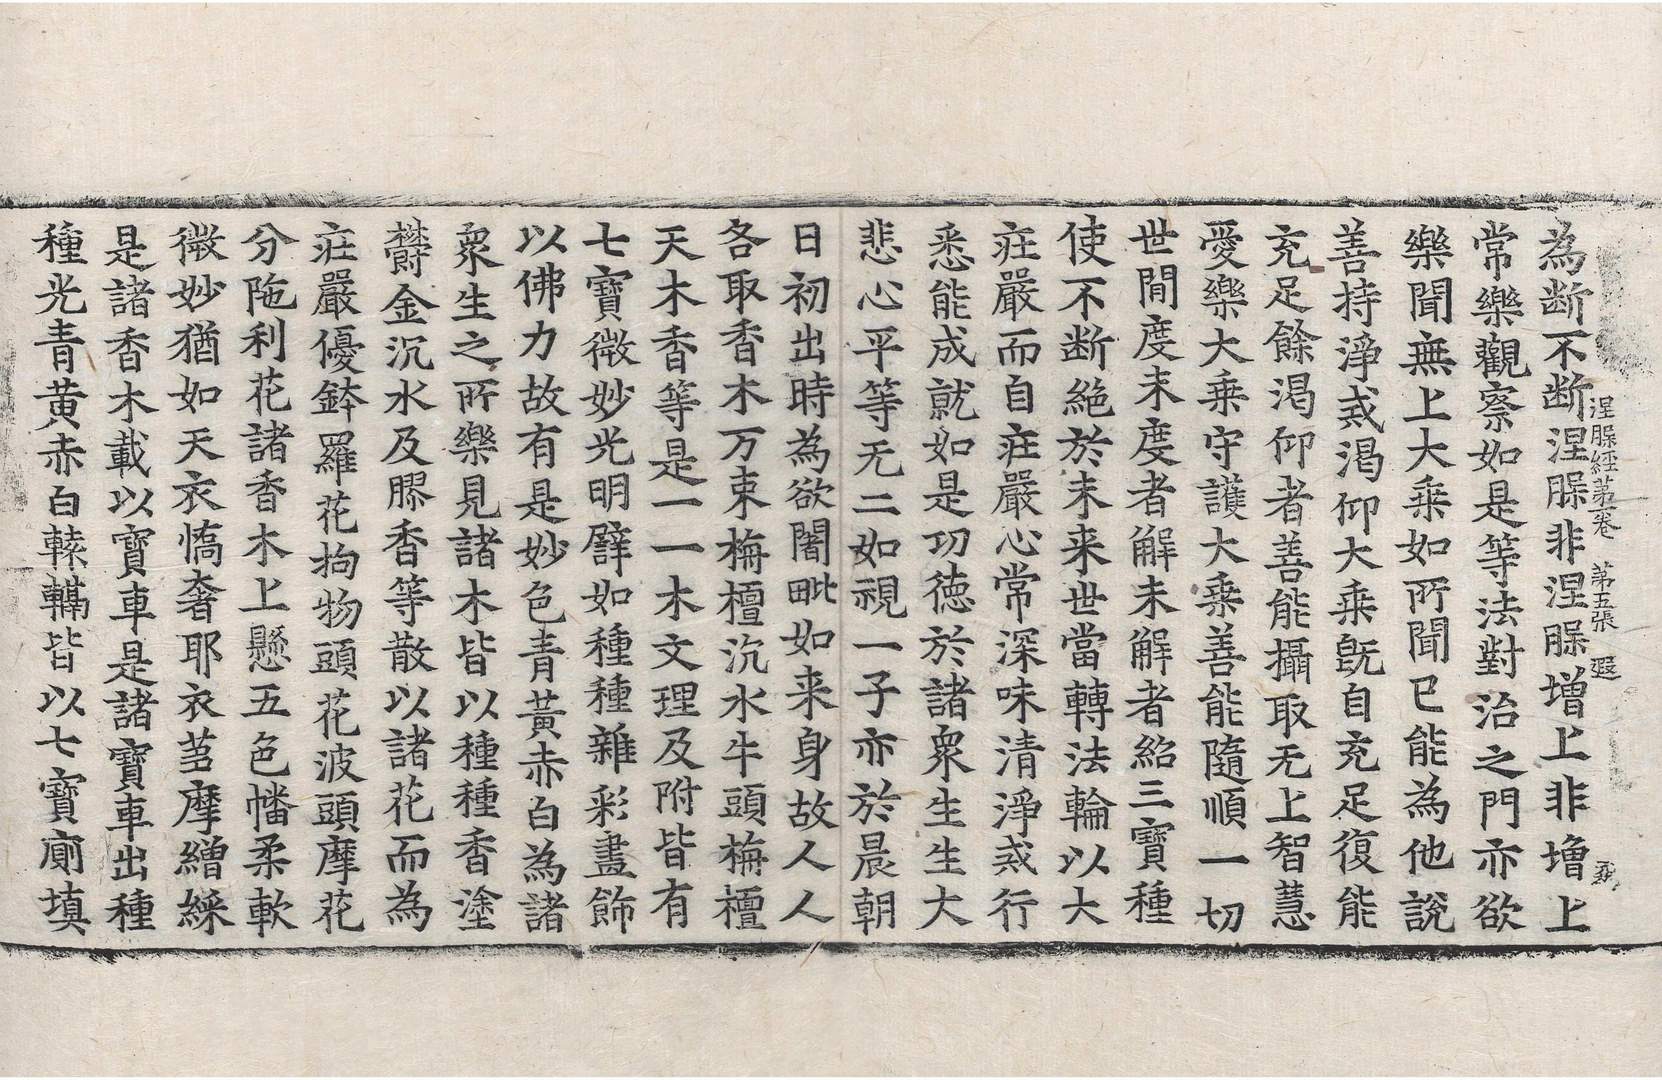 為断不断涅腺非涅腺增上非增上
涅腺經第一卷　第五張　遐
常樂觀察如是等法對治之門亦欲
樂聞無上大乗如所聞已能為他說
善持淨戒渴仰大乗旣自充足復能
充足餘渴仰者善能攝取无上智慧
愛樂大乗守護大乗善能隨順一切
世閒度未度者解未解者紹三寶種
使不断絶於未来世當轉法輪以大
莊嚴而自莊嚴心常深味清淨戒行
悉能成就如是功德於諸衆生生大
悲心平等无二如視一子亦於晨朝
日初出時為欲闍毗如来身故人人
各取香木万束栴檀沉水牛頭栴檀
天木香等是一一木文理及附皆有
七寶微妙光明譬如種種雜彩畫飾
以佛力故有是妙色青黃赤白為諸
衆生之所樂見諸木皆以種種香塗
欝金沉水及膠香等散以諸花而為
莊嚴優鉢羅花拘物頭花波頭摩花
分陁利花諸香木上懸五色幡柔軟
微妙猶如天衣憍奢耶衣芻摩繒綵
是諸香木載以寶車是諸寶車出種
種光青黃赤白轅轎皆以七寶廁填